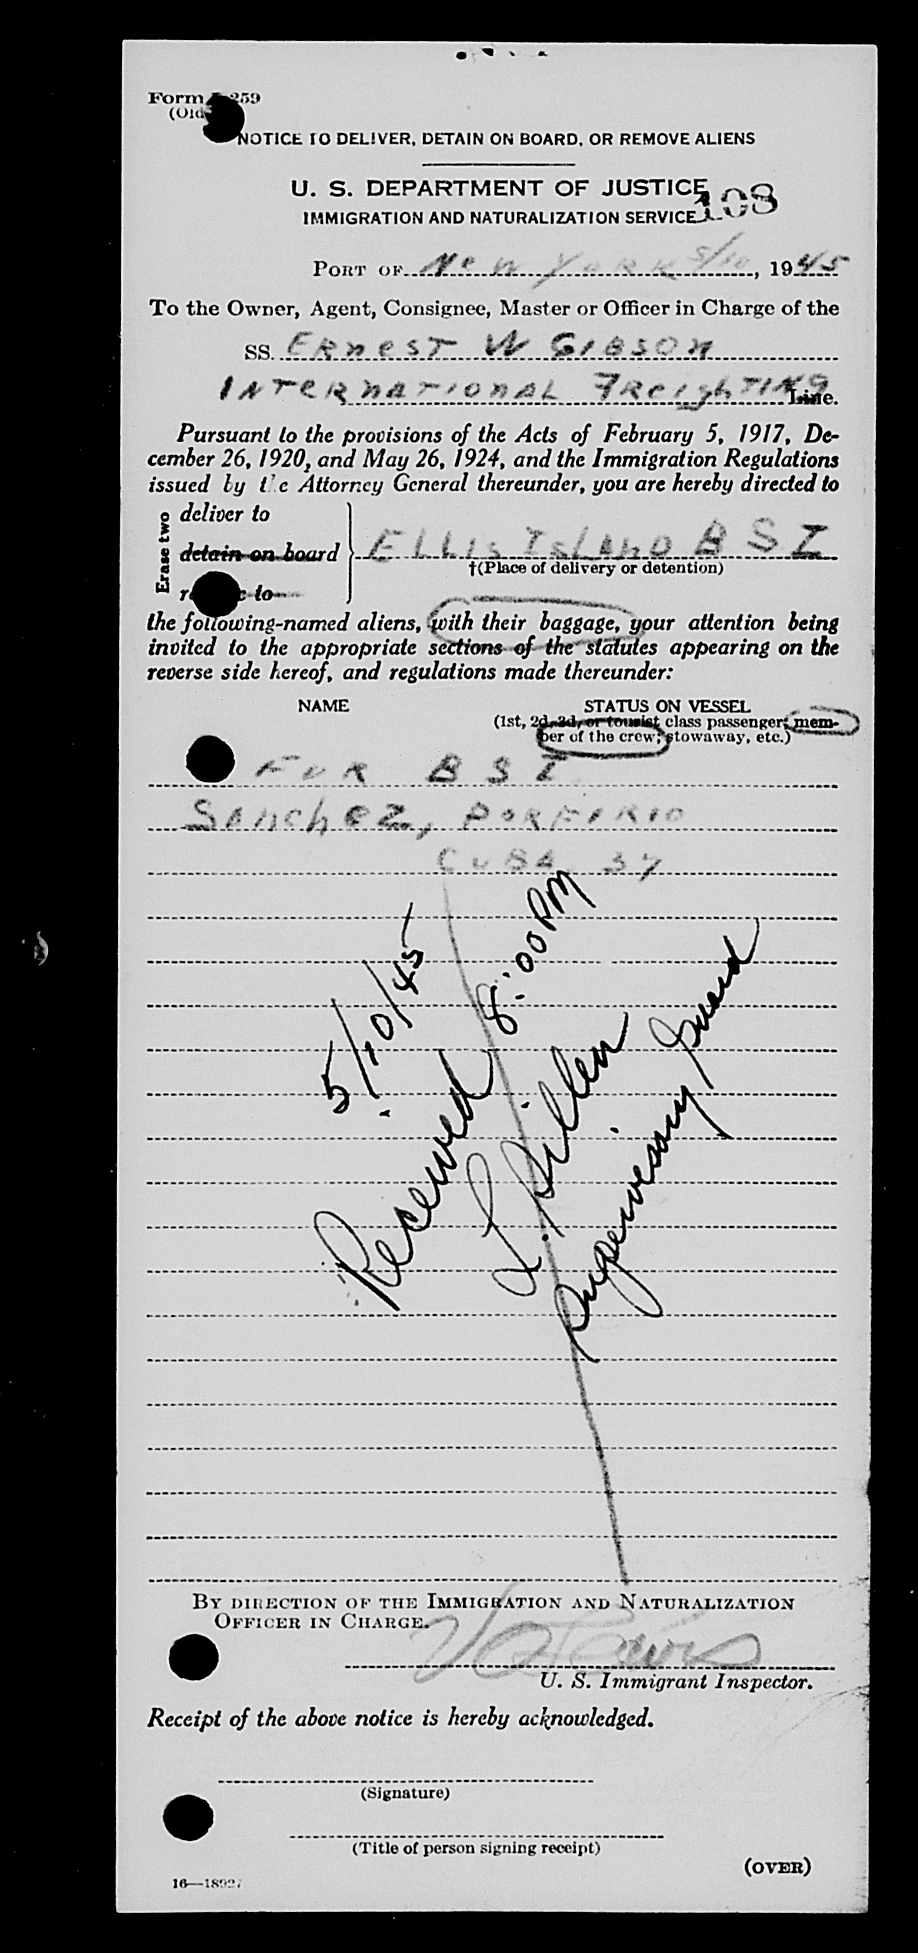 Form 259
(Old
NOTICE TO DELIVER, DETAIN ON BOARD, OR REMOVE ALIENS
U. S. DEPARTMENT OF JUSTICE
IMMIGRATION AND NATURALIZATION SERVICE 108
PORT OF New York 5/10, 1945
To the Owner, Agent, Consignee, Master or Officer in Charge of the
SS. ERNEST W GIBSON
INTERNATIONAL FREIGHTING Line.
Pursuant to the provisions of the Acts of February 5, 1917, De-
cember 26, 1920, and May 26, 1924, and the Immigration Regulations
issued by the Attorney General thereunder, you are hereby directed to
Erase two
deliver to
detain on board
to
ELLIS ISLAND B S I
†(Place of delivery or detention)
the following-named aliens, with their baggage, your attention being
invited to the appropriate sections of the statutes appearing on the
reverse side hereof, and regulations made thereunder:
NAME STATUS ON VESSEL
(1st, 2d, 3d, or tourist class passenger; mem-
ber of the crew; stowaway, etc.)
FOR B S I
Sanchez, PORFIRIO
CUBA 37
5/10/45
Received 8:00 PM
L. Sillen
Supervisory Guard
BY DIRECTION OF THE IMMIGRATION AND NATURALIZATION
OFFICER IN CHARGE.
U. S. Immigrant Inspector.
Receipt of the above notice is hereby acknowledged.
(Signature)
(Title of person signing receipt)
(OVER)
16—18927